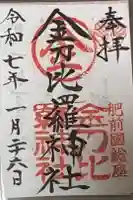 奉拝
金刀比羅神社
令和七年一月二十六日
肥前國鎗屋
金刀比
羅神社